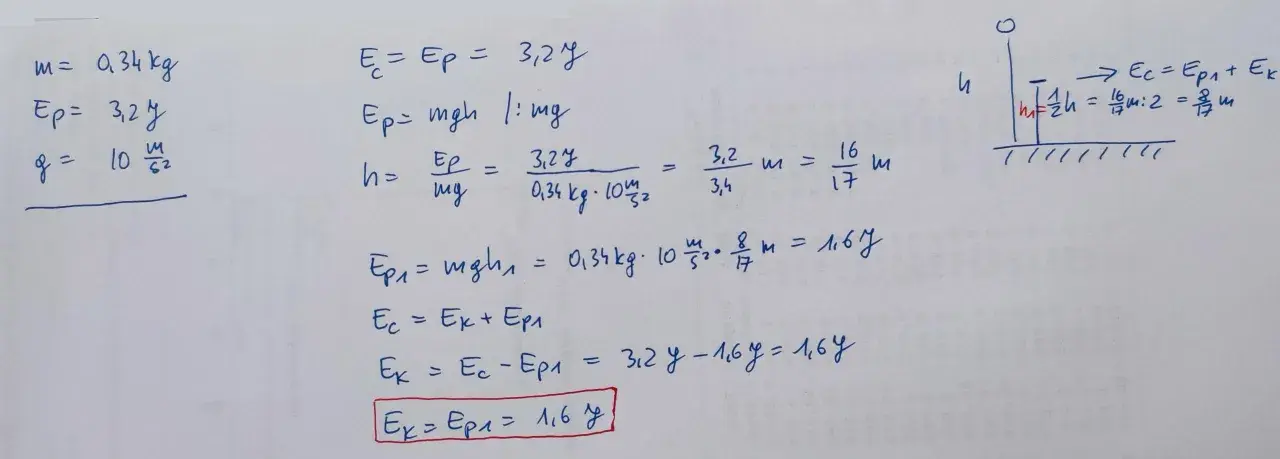 m = 0,34 kg
Ep = 3,2 J
g = 10 m/s²
Ec = Ep = 3,2 J
Ep = mgh /: mg
h = Ep/mg = 3,2 J/0,34 kg · 10 m/s² = 3,2/3,4 m = 16/17 m
Ep1 = mgh1 = 0,34 kg · 10 m/s² · 8/17 m = 1,6 J
Ec = Ek + Ep1
Ek = Ec - Ep1 = 3,2 J - 1,6 J = 1,6 J
Ek = Ep1 = 1,6 J
h
→ Ec = Ep1 + Ek
h1 = 1/2 h = 16/17 m : 2 = 8/17 m